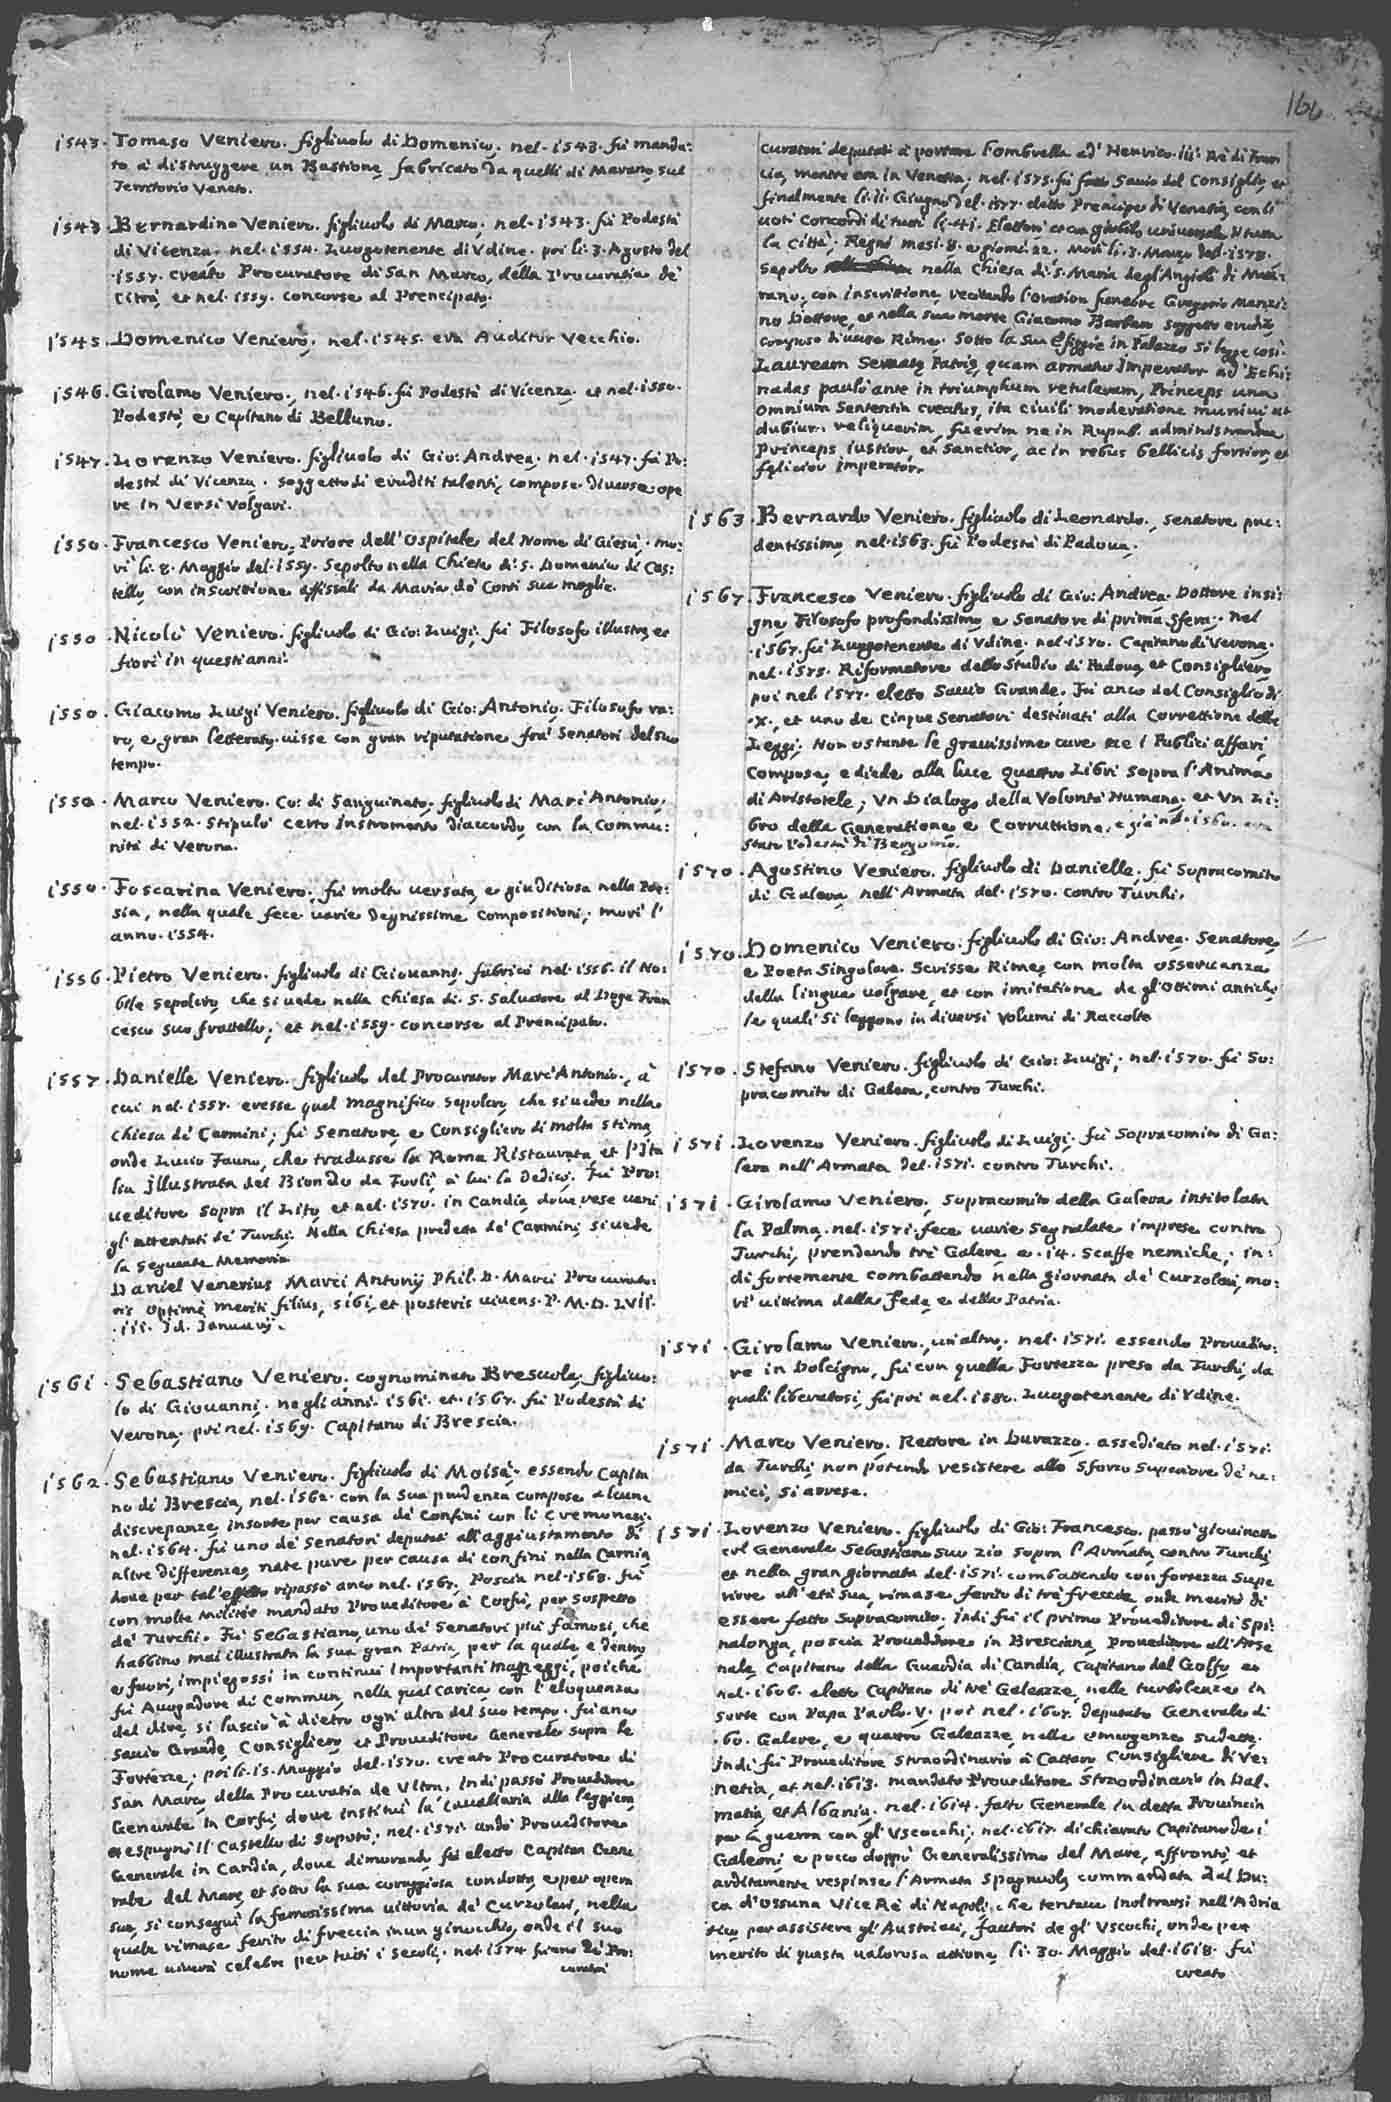 166
1543. Tomaso Veniero. figliuolo di Domenico. nel. 1543. fù manda:
to à distruggere un Bastione, fabricato da quelli di Marano, sul
Territorio Veneto.
1543. Bernardino Veniero. figliuolo di Marco. nel. 1543. fù Podestà
di Vicenza. nel. 1554. Luogotenente di Vdine. poi li. 3. Agosto del
.1557. creato Procuratore di San Marco, della Procuratia de
Citra, et nel. 1559. concorse al Prencipato.
1545. Domenico Veniero, nel. 1545. era Auditor Vecchio.
1546. Girolamo Veniero., nel. 1546. fù Podestà di Vicenza. et nel. 1550.
Podestà, e Capitano di Belluno.
1547. Lorenzo Veniero. figliuolo di Gio: Andrea. nel. 1547. fù Po:
destà di Vicenza. soggetto di eruditi talenti, compose diuerse ope
re in Versi Volgari.
1550. Francesco Veniero, Priore dell'Ospitale del Nome di Giesù. mo:
rì li. 8. Maggio del. 1559. sepolto nella Chiesa di S. Domenico di Cas:
tello, con inscrittione affissali da Maria de Conti sua moglie.
1550. Nicolò Veniero. figliuolo di Gio: Luigi, fù Filosofo illustre, et
fiorì in questi anni.
1550. Giacomo Luigi Veniero. figliuolo di Gio: Antonio, Filosofo ra:
ro, e gran letterato. uisse con gran riputatione frà Senatori del suo
tempo.
1550. Marco Veniero. Co: di Sanguinato. figliuolo di Marc'Antonio,
nel. 1552. stipulò certo Instromento d'accordo, con la Commu:
nità di Verona.
1550. Foscarina Veniero. fù molto uersata, e giuditiosa nella Poe:
sia, nella quale fece uarie degnissime compositioni, morì l'
anno. 1554.
1556. Pietro Veniero. figliuolo di Giouanni, fabricò nel. 1556. il No:
bile sepolcro, che si uede nella Chiesa di. S. Saluatore al Doge Fran
cesco suo fratello, et nel. 1559. concorse al Prencipato.
1557. Danielle Veniero. figliuolo del Procurator Marc'Antonio., à
cui nel. 1557. eresse quel magnifico sepolcro, che si uede nella
Chiesa de Carmini; fù Senatore, e Consigliero di molta stima,
onde Lucio Fauno, che tradusse la Roma Ristaurata, et l'Ita
lia illustrata del Biondo da Forlì, à lui la dedicò. fù Pro:
ueditore sopra il Lito, et nel. 1570. in Candia, doue rese uani
gl'attentati de Turchi. Nella Chiesa predetta de Carmini, si uede
la seguente Memoria
Daniel Venerius Marci Antonij Phil. D. Marci Procurato:
ris optimè meriti filius, sibi, et posteris uiuens. P. M. D. LVII.
.III. Id. Ianuarij.
1561. Sebastiano Veniero, cognominato Bresuola, figliuo:
lo di Giouanni. negli anni. 1561. et. 1567. fù Podestà di
Verona, poi nel. 1569. Capitano di Brescia.
1562. Sebastiano Veniero. figliuolo di Moisè, essendo Capita
no di Brescia, nel. 1562. con la sua prudenza compose alcune
discrepanze, insorte per causa de Confini con li Cremonesi.
nel. 1564. fù uno de Senatori deputati all'aggiustamento di
altre differenze, nate pure per causa di confini nella Carnia,
doue per tal'effetto ripassò anco nel. 1567. Poscia nel. 1568. fù
con molte militie mandato Proueditore à Corfù, per sospetto
de Turchi. Fù Sebastiano, uno de Senatori più famosi, che
habbino mai illustrata la sua gran Patria, per la quale, e dentro,
e fuori, impiegossi in continui importanti maneggi, poiche
fù Auogadore di Commun, nella qual carica, con l'eloquenza
del dire, si lasciò à dietro ogn'altro del suo tempo. fù anco
Sauio Grande, Consigliero, et Proueditore Generale sopra le
Fortezze, poi li. 15. Maggio del. 1570. creato Procuratore di
San Marco, della Procuratia de Vltra, Indi passò Proueditore
Generale in Corfù, doue instituì la Cauallaria alla leggiera,
et espugnò il Castello di Sopotò; nel. 1571. andò Proueditore
Generale in Candia, doue dimorando, fù eletto Capitan Gene
rale del mare, et sotto la sua coraggiosa condotta, e per opera
sua, si conseguì la famosissima uittoria de Curzolari, nella
quale rimase ferito di freccia in un ginocchio, onde il suo
nome uiuerà celebre per tutti i secoli. nel. 1574. fù uno de Pro:
curatori
curatori deputati à portare l'ombrella ad' Henrico. III. Rè di Fran
cia, mentre era in Venetia, nel. 1575. fù fatto Sauio del Consiglio, et
finalmente li. 11. Giugno del. 1577. eletto Prencipe di Venetia, con li
uoti concordi di tutti li. 41. Elettori et con giubilo uniuersale di tutta
la Città. Regnò mesi. 8. e giorni. 22. Morì li. 3. Marzo del. 1578.
Sepolto nella Chiesa di S. Maria degl'Angioli di Mu:
rano, con inscrittione, recitando l'oration funebre Gregorio Manzi:
no Dottore, et nella sua morte Giacomo Barbaro soggetto erudito,
compose diuerse Rime. Sotto la sua Effigie in Palazzo si legge così.
Lauream Senatus Patris, quam armatus Imperator ad' Echi:
nadas paulò ante in triumphum retuleram, Princeps una
omnium Sententia creatus, ita ciuili moderatione muniui, ut
dubium reliquerim, fuerim ne in Repub. administranda
Princeps iustior, et Sanctior, ac in rebus bellicis fortior, et
felicior Imperator.
1563. Bernardo Veniero. figliuolo di Leonardo., senatore pru:
dentissimo, nel. 1563. fù Podestà di Padoua.
1567. Francesco Veniero. figliuolo di Gio: Andrea. Dottore insi:
gne, Filosofo profondissimo, e Senatore di prima Sfera. nel
.1567. fù Luogotenente di Vdine. nel. 1570. Capitano di Verona.
nel. 1575. Riformatore dello Studio di Padoua, et Consigliero,
poi nel. 1577. eletto Sauio Grande. Fù anco del Consiglio di
.X., et uno de Cinque Senatori destinati alla Correttione delle
Leggi. Non ostante le grauissime cure ne i Publici affari,
Compose, e diede alla luce quattro Libri sopra l'Anima
di Aristotele; Vn Dialogo della Volontà Humana. et Vn Li:
bro della Generatione, e Corruttione. e già nel. 1560. era
stato Podestà di Bergamo.
1570. Agostino Veniero. figliuolo di Danielle, fù Sopracomito
di Galera, nell'Armata del. 1570. contro Turchi.
1570. Domenico Veniero. figliuolo di Gio: Andrea. Senatore,
e Poeta Singolare. Scrisse Rime, con molta osseruanza
della lingua uolgare, et con imitatione de gl'ottimi antichi,
le quali si leggono in diuersi Volumi di Raccolte
1570. Stefano Veniero. figliuolo di Gio: Luigi, nel. 1570. fù So:
pracomito di Galera, contro Turchi.
1571. Lorenzo Veniero. figliuolo di Luigi, fù Sopracomito di Ga:
lera nell'Armata del. 1571. contro Turchi.
1571. Girolamo Veniero, Sopracomito della Galera intitolata
la Palma. nel. 1571. fece uarie segnalate imprese contro
Turchi, prendendo trè Galere, e. 14. Scaffe nemiche, in:
di fortemente combattendo nella giornata de Curzolari, mo:
rì uittima della Fede, e della Patria.
1571. Girolamo Veniero, un'altro, nel. 1571. essendo Prouedito:
re in Dolcigno, fù con quella Fortezza preso da Turchi, da
quali liberatosi, fù poi nel. 1580. Luogotenente di Vdine.
1571. Marco Veniero. Rettore in Durazzo. assediato nel. 1571.
da Turchi, non potendo resistere allo sforzo Superiore de ne:
mici, si arrese.
1571. Lorenzo Veniero. figliuolo di Gio: Francesco, passò giouinetto
col Generale Sebastiano suo zio sopra l'Armata, contro Turchi,
et nella gran giornata del. 1571. combattendo con fortezza supe
riore all'età sua, rimase ferito di trè freccie, onde meritò di
essere fatto Sopracomito. Indi fù il primo Proueditore di Spi:
nalonga, poscia Proueditore in Bresciana, Proueditore all'Arse
nale, Capitano della Guardia di Candia, Capitano del Golfo, et
nel. 1606. eletto Capitano di trè Galeazze, nelle turbolenze in
sorte con Papa Paolo. V. poi nel. 1607. deputato Generale di
.60. Galere, e quattro Galeazze, nelle emergenze sudette.
Indi fù Proueditore straordinario à Cattaro, Consigliere di Ve:
netia, et nel. 1613. mandato Proueditore Straordinario in Dal.
matia, et Albania. nel. 1614. fatto Generale in detta Prouincia
per la guerra con gl'Vscocchi, nel. 1617. dichiarato Capitano de i
Galeoni, e poco doppò Generalissimo del Mare, affrontò, et
arditamente respinse l'Armata Spagnuola, commandata dal Du:
ca d'Ossuna Vice Rè di Napoli, che tentaua inoltrarsi nell'Adria
tico, per assistere gl'Austriaci, fautori de gl'Vscochi, onde per
merito di questa ualorosa attione, li. 30. Maggio del. 1618. fù
creato